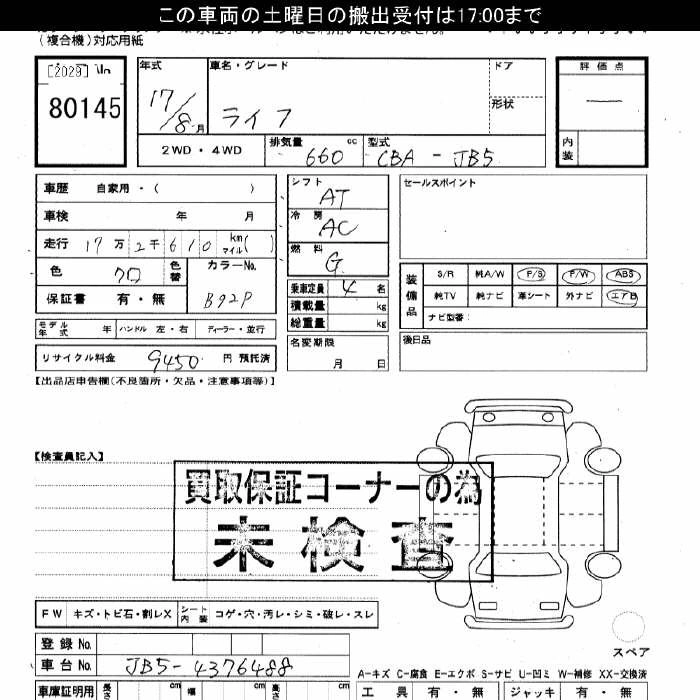 この車両の土曜日の搬出受付は17:00まで
(複合機)対応用紙
80145
年式 車名・グレード ドア 評価点
17/8月 ライフ 形状 —
2WD・4WD 排気量 660 cc 型式 CBA - JB5 内装
車歴 自家用・( )
シフト AT
セールスポイント
車検 年 月
冷房 AC
走行 17万2千610 km マイル( )
燃料 G
色 クロ 色替 カラーNo. B92P
保証書 有・無
乗車定員 4名
積載量 kg
総重量 kg
装備品 S/R 純A/W P/S P/W ABS
純TV 純ナビ 革シート 外ナビ エアB
ナビ型番:
モデル年式 年 ハンドル 左・右 ディーラー・並行
名変期限 月 日
後日品
リサイクル料金 9450 円 預託済
【出品店申告欄(不良箇所・欠品・注意事項等)】
【検査員記入】
買取保証コーナーの為
未検査
FW キズ・トビ石・割レX シート内装 コゲ・穴・汚レ・シミ・破レ・スレ
スペア
登録No.
車台No. JB5-4376488
A-キズ C-腐食 E-エクボ S-サビ U-凹ミ W-補修 XX-交換済
車庫証明用 長さ cm 幅 cm 高さ cm
工具 有・無 ジャッキ 有・無